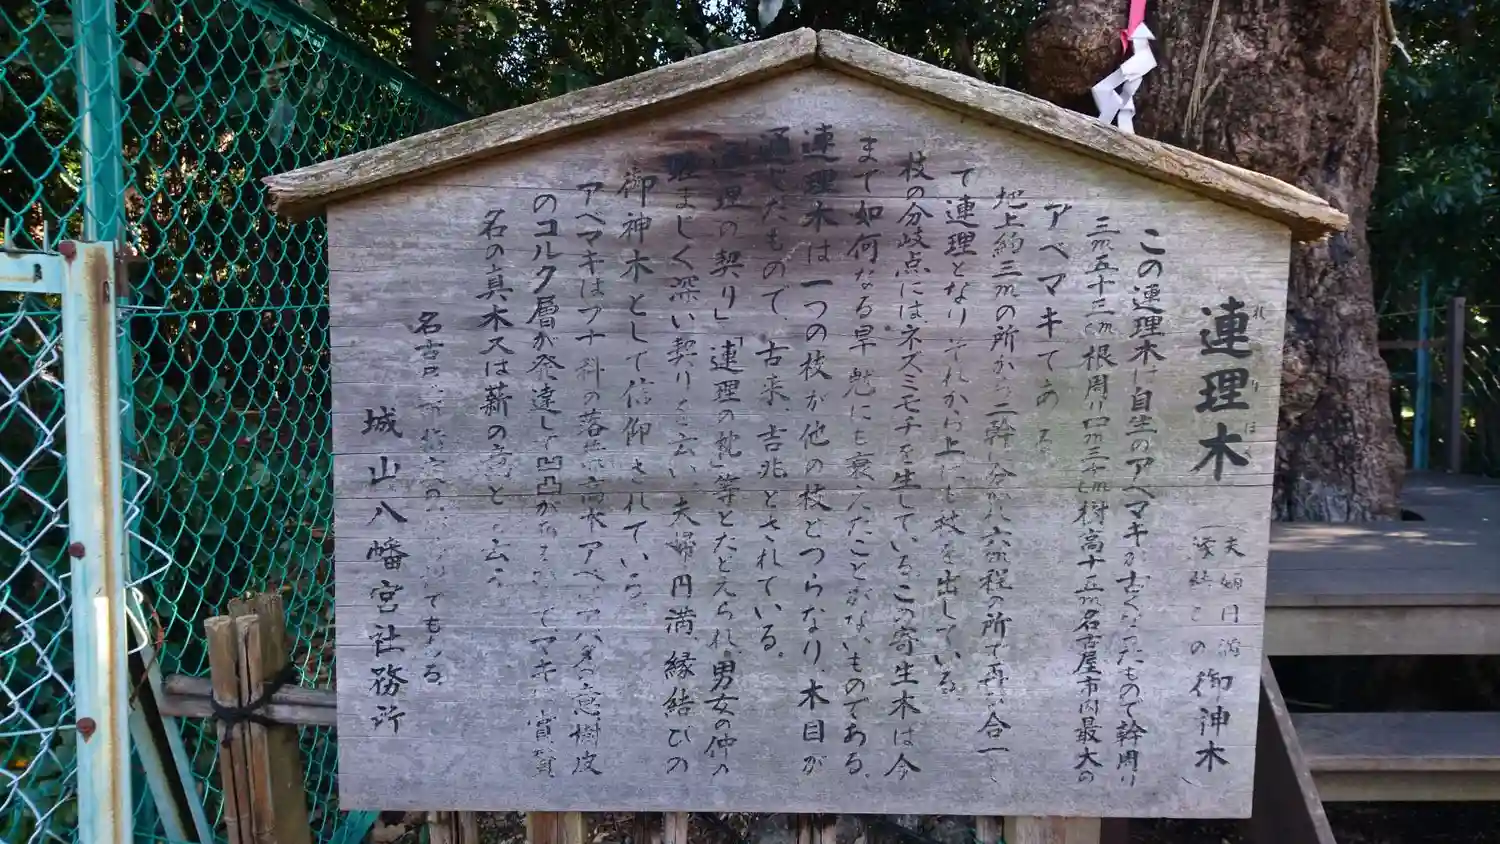 連理木
れんりぼく
(夫婦円満
縁結び)の御神木
この連理木は自生のアベマキが古くなったもので幹周り
三m五十三cm根周り四m三十cm樹高十五m名古屋市内最大の
アベマキである
地上約三mの所から二幹に分かれ六m程の所で再び合一し
て連理となりそれから上にも枝を出している
枝の分岐点にはネズミモチを生しているこの寄生木は今
まで如何なる旱魃にも衰えたことがないものである。
連理木は一つの枝が他の枝とつらなり木目が
通じたもので、古来、吉兆とされている。
連理の契り」「連理の枕」等とたとえられ、男女の仲の
睦まじく深い契りを云い、夫婦円満、縁結びの
御神木として信仰されている
アベマキはブナ科の落葉高木アベはアバタの意樹皮
のコルク層が発達して凹凸がある マキ
名の真木又は薪の意と云う
名古屋市指定の でもある。
城山八幡宮社務所